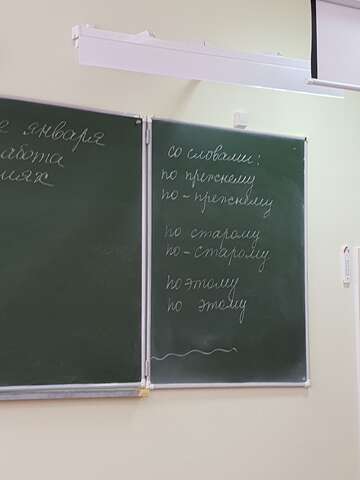 января
со словами:
по прежнему
по-прежнему
по старому
по-старому
поэтому
по этому